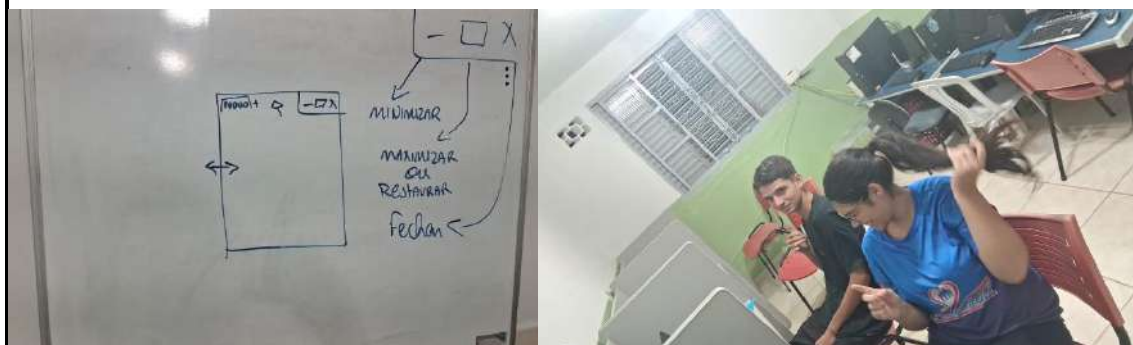 - □ X
- □ X
MINIMIZAR
MAXIMIZAR
OU
RESTAURAR
Fechar